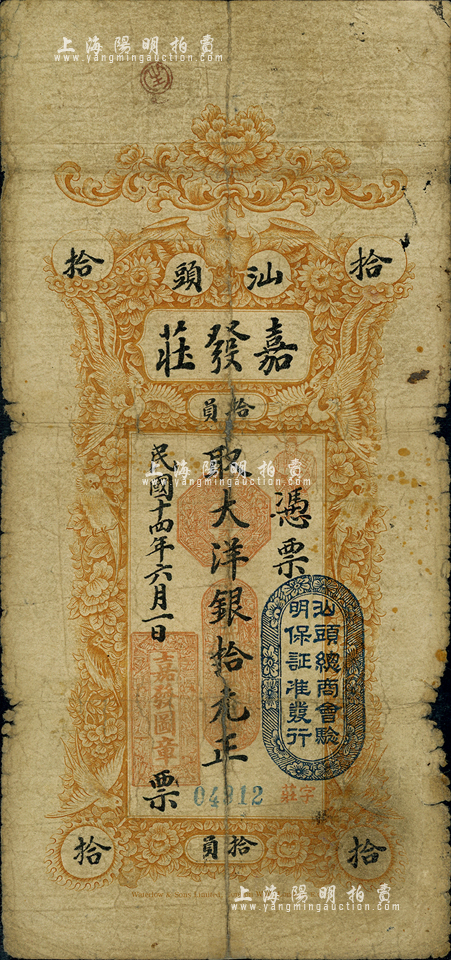 上海陽明拍賣
www.yangmingauction.com
拾
汕頭
拾
嘉發莊
拾員
憑票
取大洋銀拾元正
民國十四年六月一日
上海陽明拍賣
www.yangmingauction.com
汕頭總商會驗
明保証准發行
嘉發圖章
票
04812
字莊
拾
拾員
拾
Waterlow & Sons Limited
上海陽明拍賣
www.yangmingauction.com